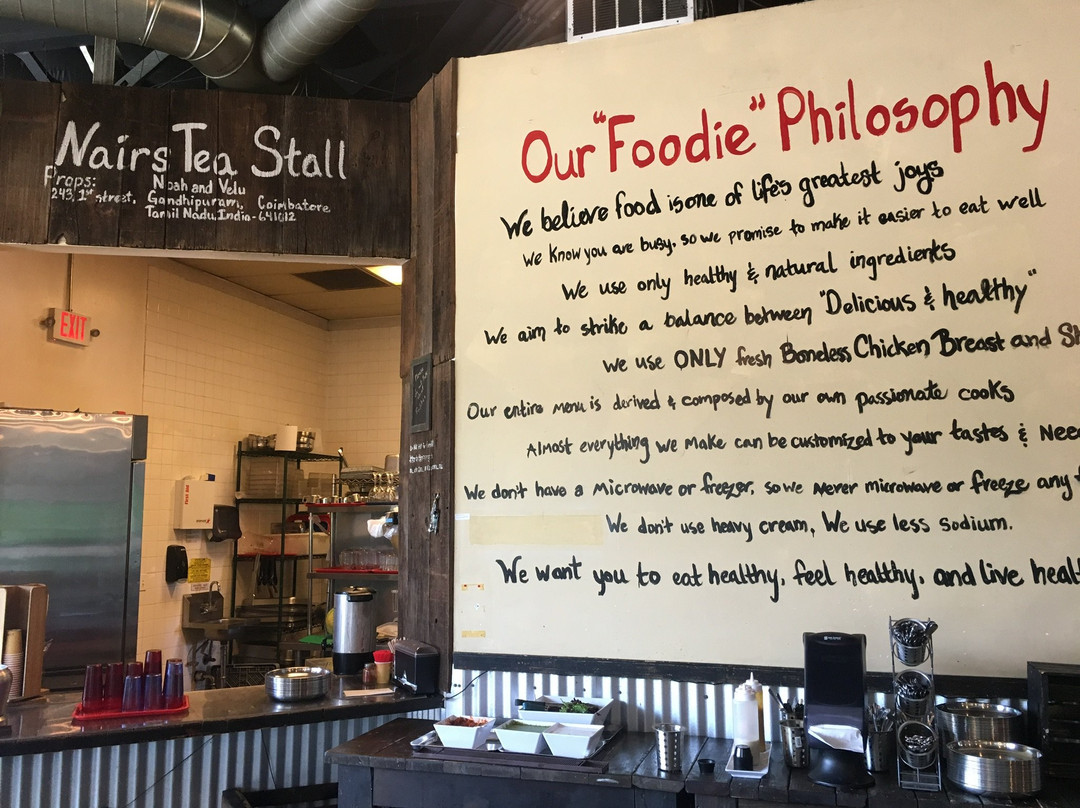 Nairs Tea Stall
Props: Noah and Velu
243, 1st street, Gandhipuram, Coimbatore
Tamil Nadu, India - 641012
EXIT
Our "Foodie" Philosophy
We believe food is one of life's greatest joys
We know you are busy, so we promise to make it easier to eat well
We use only healthy & natural ingredients
We aim to strike a balance between "Delicious & healthy"
We use ONLY fresh Boneless Chicken Breast and
Our entire menu is derived & composed by our own passionate cooks
Almost everything we make can be customized to your tastes &
We don't have a Microwave or freezer, so we never microwave or freeze any
We don't use heavy cream, We use less sodium.
We want you to eat healthy, feel healthy, and live